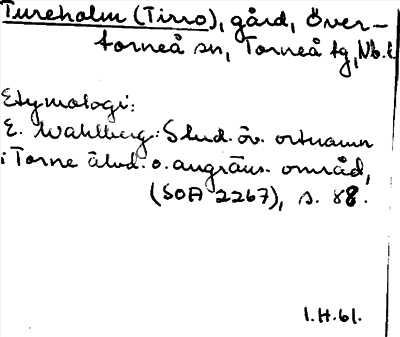 Tureholm (Tirro), gård, Över-
torneå sn, Torneå tg, Nb.l
Etymologi:
E. Wahlberg: Stud. öv. ortnamn
i Torne älvd. o. angräns. områd,
(SOA 2267), s. 88.
1.H.61.